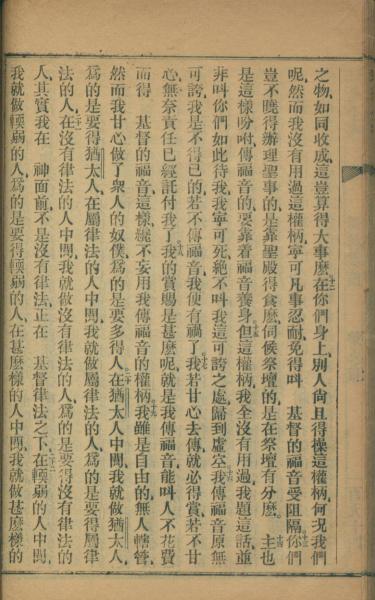 之物、如同收成、這豈算得大事麼、在你們身上、別人尙且得操這權柄、何況我們
呢、然而我沒有用過這權柄、寧可凡事忍耐、免得叫　基督的福音受阻隔、你們
豈不曉得辦理聖事的、是靠聖殿得食麼、伺候祭壇的、是在祭壇有分麼、　主也
是這樣吩咐傳福音的、要靠着福音養身、但這權柄、我全沒有用過、我題這話、並
非叫你們如此待我、我寧可死、絕不叫我這可誇之處、歸到虛空、我傳福音原無
可誇、我是不得已的、若不傳福音、我便有禍了、我若甘心去傳、就必得賞、若不甘
心、無奈責任已經託付我了、我的賞賜是甚麼呢、就是我傳福音、能叫人不花費
而得　基督的福音、這樣纔不妄用我傳福音的權柄、我雖是自由的、無人轄管、
然而我甘心做了衆人的奴僕、爲的是要多得人、在猶太人中間、我就做猶太人、
爲的是要得猶太人、在屬律法的人中間、我就做屬律法的人、爲的是要得屬律
法的人、在沒有律法的人中間、我就做沒有律法的人、爲的是要得沒有律法的
人、其實我在　神面前、不是沒有律法、正在　基督律法之下、在輭弱的人中間、
我就做輭弱的人、爲的是要得輭弱的人、在甚麼樣的人中間、我就做甚麼樣的